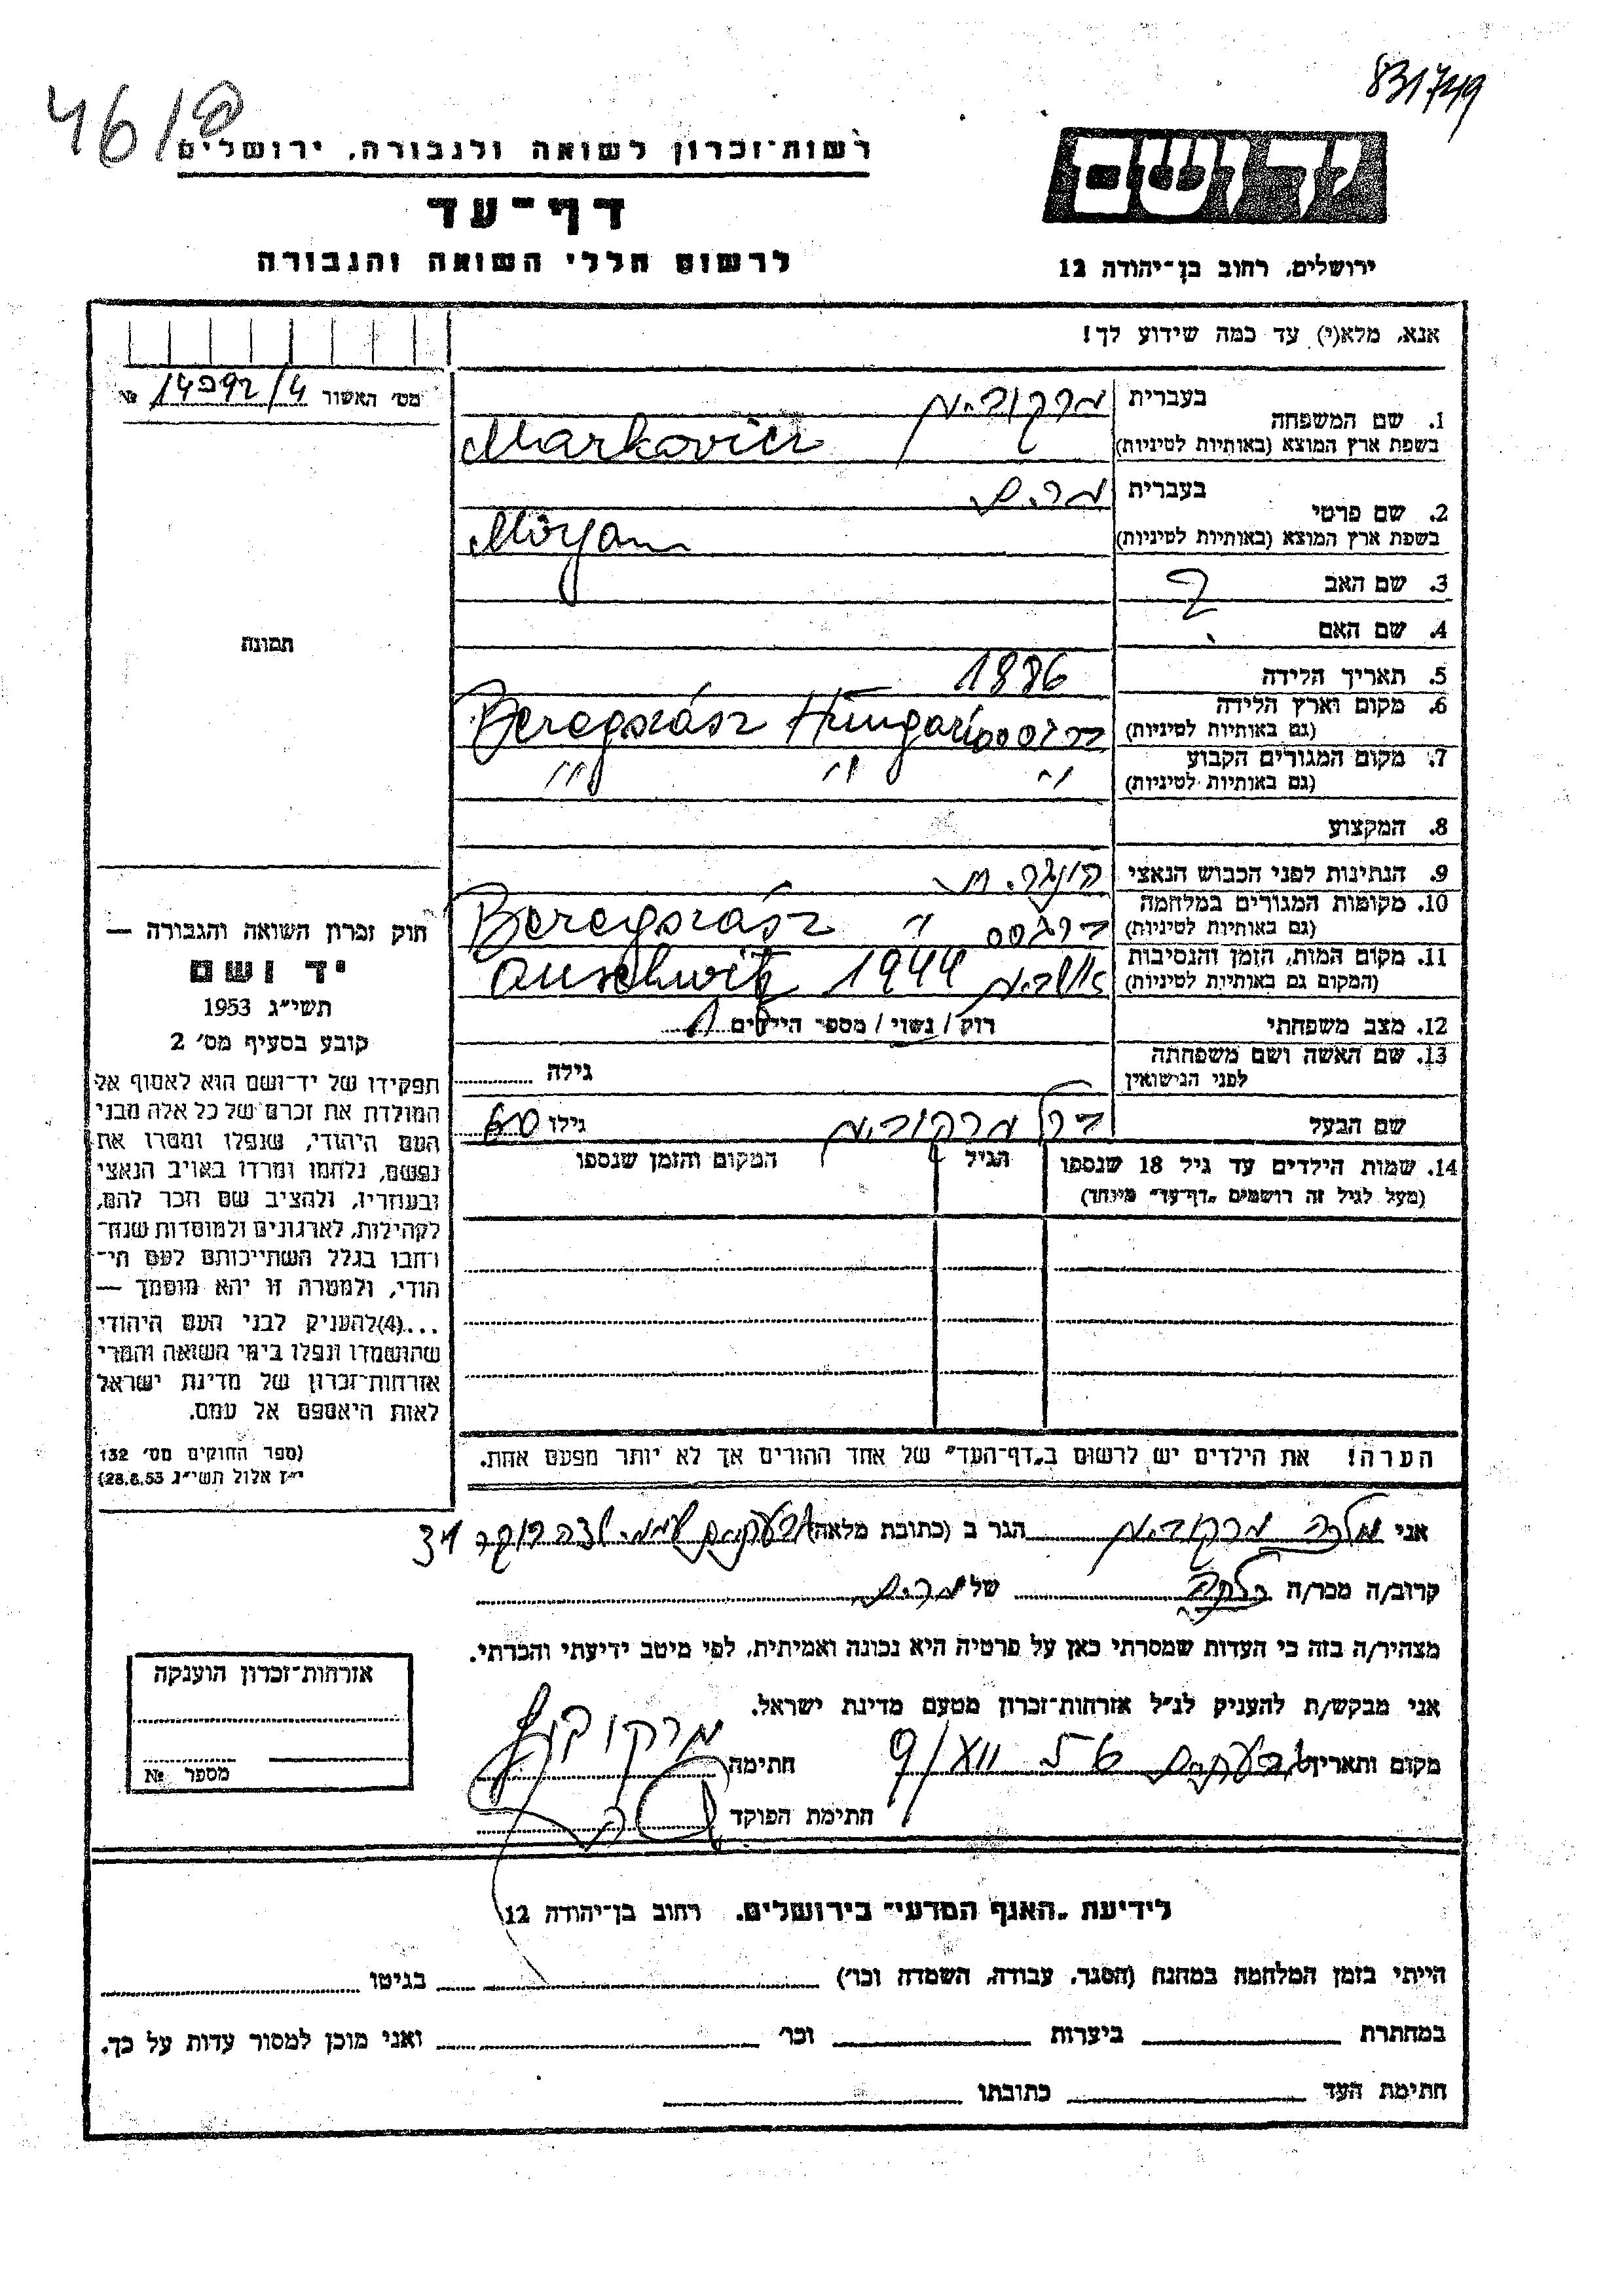 831749
46/פ
רשות־זכרון לשואה ולגבורה, ירושלים
דף־עד
לרשום חללי השואה והגבורה
ידושם
ירושלים, רחוב בן־יהודה 12
אנא, מלא(י) עד כמה שידוע לך!
מס׳ האשור № 14992/4
1. שם המשפחה בעברית מרקוביץ
בשפת ארץ המוצא (באותיות לטיניות) Markovicz
2. שם פרטי בעברית מרים
בשפת ארץ המוצא (באותיות לטיניות) Miryam
3. שם האב ?
4. שם האם
5. תאריך הלידה 1886
6. מקום וארץ הלידה (גם באותיות לטיניות) ברגסס Beregszász Hungari
7. מקום המגורים הקבוע (גם באותיות לטיניות) " " "
8. המקצוע
9. הנתינות לפני הכבוש הנאצי הונגרית
10. מקומות המגורים במלחמה (גם באותיות לטיניות) ברגסס " Beregszász
11. מקום המות, הזמן והנסיבות (המקום גם באותיות לטיניות) אושביץ 1944 Auschwitz
12. מצב משפחתי רוק / נשוי / מספר הילדים
13. שם האשה ושם משפחתה לפני הנישואין גילה
שם הבעל מרקוביץ גילו 60
14. שמות הילדים עד גיל 18 שנספו הגיל המקום והזמן שנספו
(מעל לגיל זה רושמים „דף־עד״ מיוחד)
הערה! את הילדים יש לרשום ב„דף־העד״ של אחד ההורים אך לא יותר מפעם אחת.
תמונה
חוק זכרון השואה והגבורה —
יד ושם
תשי״ג 1953
קובע בסעיף מס׳ 2
תפקידו של יד־ושם הוא לאסוף אל
המולדת את זכרם של כל אלה מבני
העם היהודי, שנפלו ומסרו את
נפשם, נלחמו ומרדו באויב הנאצי
ובעוזריו, ולהציב שם וזכר להם,
לקהילות, לארגונים ולמוסדות שנח־
רחבו בגלל השתייכותם לעם הי־
הודי, ולמטרה זו יהא מוסמך —
...(4)להעניק לבני העם היהודי
שהושמדו ונפלו בימי השואה והמרי
אזרחות־זכרון של מדינת ישראל
לאות היאספם אל עמם.
(ספר החוקים מס׳ 132
י״ז אלול תשי״ג 28.8.53)
אני מלכה מרקוביץ הגר ב (כתובת מלאה) 34
קרוב/ה מכר/ה כלתה של מרים
מצהיר/ה בזה כי העדות שמסרתי כאן על פרטיה היא נכונה ואמיתית, לפי מיטב ידיעתי והכרתי.
אני מבקש/ת להעניק לנ״ל אזרחות־זכרון מטעם מדינת ישראל.
מקום ותאריך חתימה מרקוביץ
חתימת הפוקד
אזרחות־זכרון הוענקה
מספר №
לידיעת „האגף המדעי״ בירושלים, רחוב בן־יהודה 12
הייתי בזמן המלחמה במחנה (הסגר, עבודה, השמדה וכו׳) בגיטו
במחתרת ביערות וכו׳ ואני מוכן למסור עדות על כך.
חתימת העד כתובתו